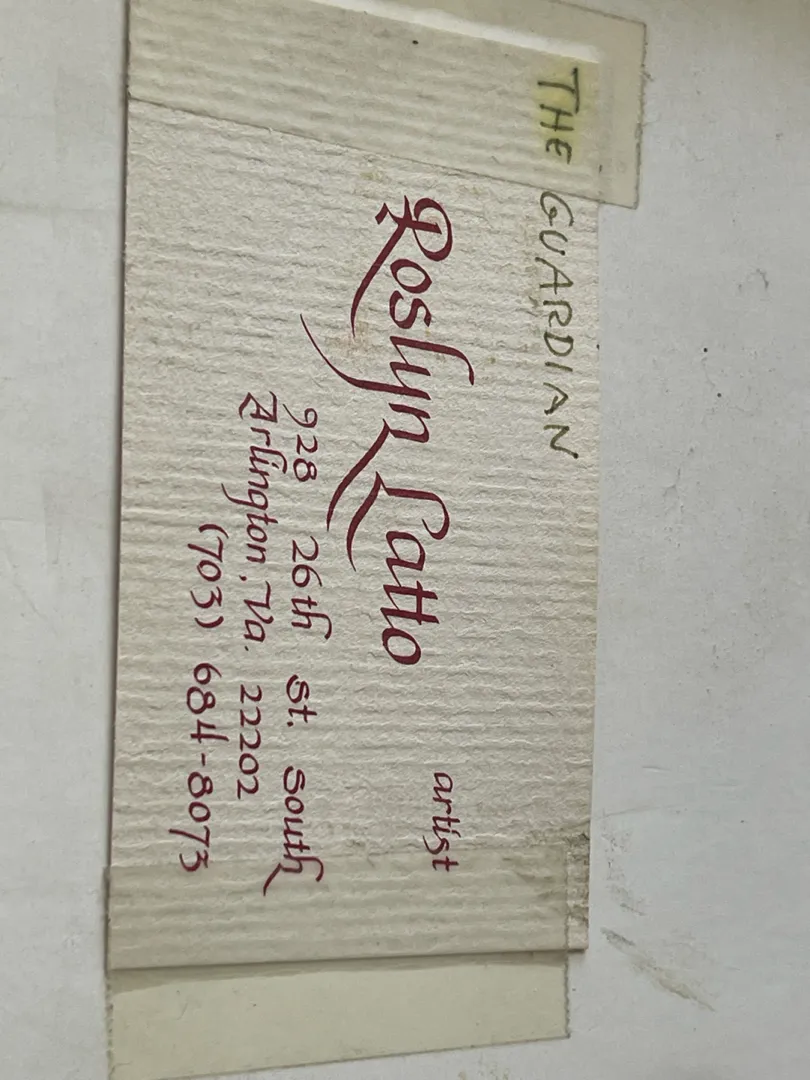 THE GUARDIAN
artist
Roslyn Latto
928 26th St. South
Arlington, Va. 22202
(703) 684-8073